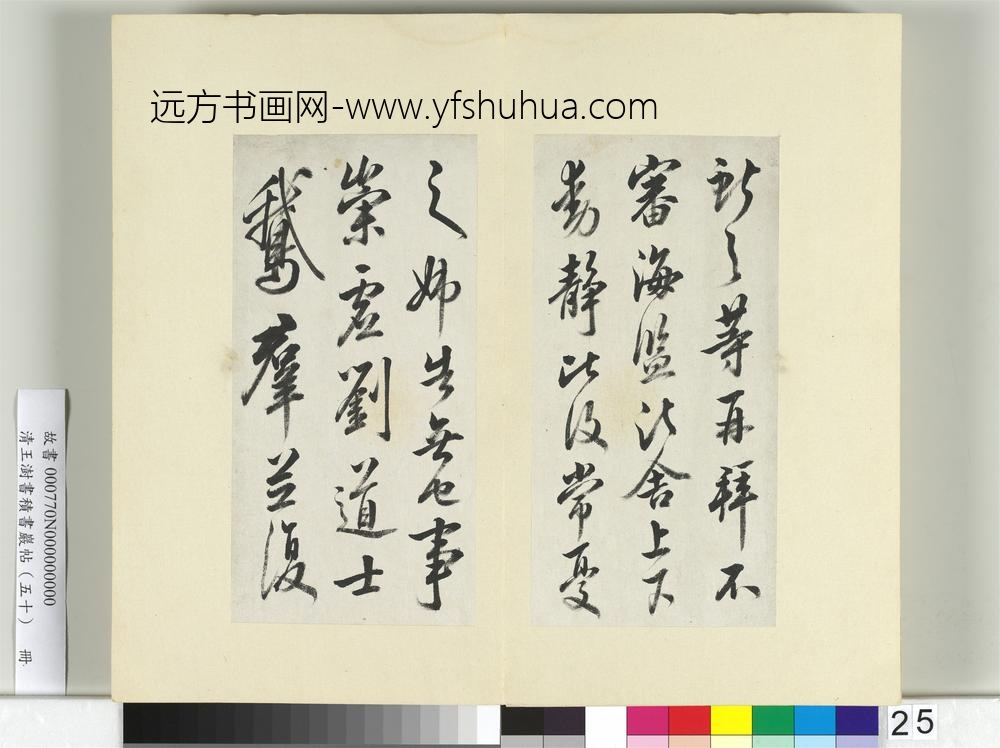 远方书画网-www.yfshuhua.com
獻之等再拜不
審海鹽諸舍上下
動靜比復常憂
之姊告無他事
崇虛劉道士
鵝羣並復
故書 000770N000000000
清王澍書積書巖帖(五十) 冊
25